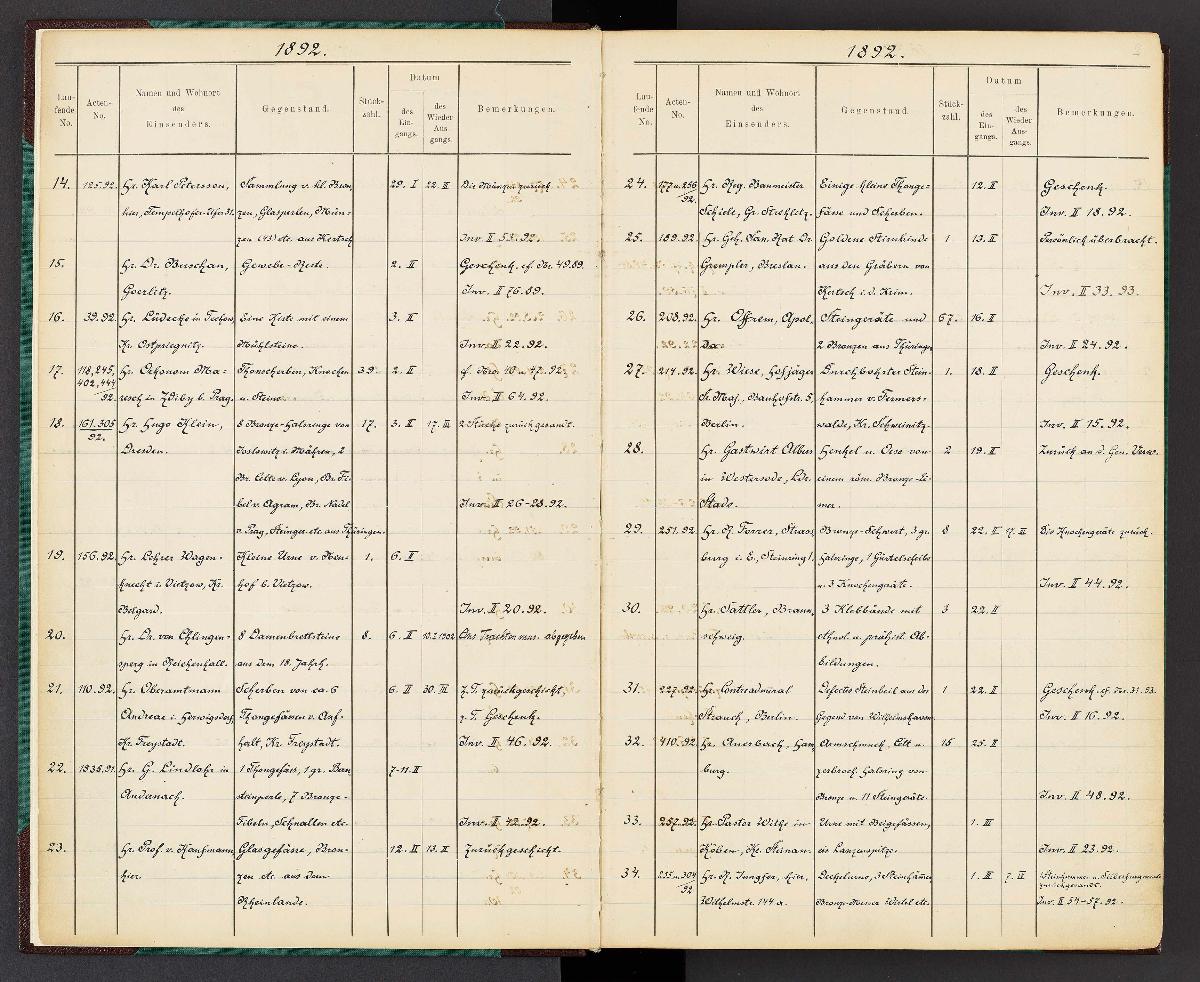 1892.
Datum
Lau-
fende
No.
Acten-
No.
Namen und Wohnort
des
Einsenders.
Gegenstand.
Stück-
zahl.
des
Ein-
gangs.
des
Wieder
Aus-
gangs.
Bemerkungen.
14. 125.92. Hr. Karl Petersson, Sammlung v. kl. Bron 29. I 22. II Die Münzen zurück
hier, Tempelhofer-Ufer 31. zen, Glasperlen, Mün-
zen (43) etc. aus Kertsch Inv. II 53.92.
15. Hr. Dr. Buschan, Gewebe-Reste. 2. II Geschenk. cf. Nr. 49.89.
Goerlitz. Inv. II 76.89.
16. 39.92. Hr. Lüdecke in Techow, Eine Kiste mit einem 3. II
Kr. Ostpriegnitz. Mühlsteine. Inv. II 22.92.
17. 118,245, Hr. Oekonom Ma- Thonscherben, Knochen 39. 2. II cf. Nro 40 u. 47.92.
402,444 resch in Zdiby b. Prag. u. Steine. Inv. II 64.92.
92.
18. 161.305 Hr. Hugo Klein, 8 Bronze-Halsringe von 17. 3. II 17. III 2 Stücke zurückgesandt.
92. Dresden. Joslowitz i. Mähren, 2
Br. Celte v. Lyon, Br. Fi-
bel v. Agram, Br. Nadel Inv. II 26-28.92.
v. Prag, Steinger. etc. aus Thüringen.
19. 156.92. Hr. Lehrer Wagen- Kleine Urne v. Neu- 1. 6. II
knecht i. Vietzow, Kr. hof b. Vietzow.
Belgard. Inv. II 20.92.
20. Hr. Dr. von Chlingen- 8 Damenbrettsteine 8. 6. II Ans Trachten mus. abgegeben
sperg in Reichenhall. aus dem 18. Jahrh.
21. 110.92. Hr. Oberamtmann Scherben von ca. 6 6. II 30. III z. T. zurückgeschickt,
Andreae i. Herwigsdorf, Thongefässen v. Auf- z. T. Geschenk.
Kr. Freystadt. halt, Kr. Freystadt. Inv. II 46.92.
22. 1835.91. Hr. G. Lindlohr in 1 Thongefäss, 1 gr. Bern 7-11. II
Andernach. steinperle, 7 Bronze-
Fibeln, Schnallen etc. Inv. II 42.92.
23. Hr. Prof. v. Kaufmann, Glasgefässe, Bron- 12. II 13. II Zurückgeschickt.
hier. zen etc. aus dem
Rheinlande.
1892.
Datum
Lau-
fende
No.
Acten-
No.
Namen und Wohnort
des
Einsenders.
Gegenstand.
Stück-
zahl.
des
Ein-
gangs.
des
Wieder
Aus-
gangs.
Bemerkungen.
24. 177 u. 256 Hr. Reg. Baumeister Einige kleine Thonge- 12. II Geschenk.
92. Schiele, Gr. Strehlitz. fässe und Scherben. Inv. II 18.92.
25. 189.92. Hr. Geh. San. Rat Dr. Goldene Stirnbinde 1. 13. II Persönlich überbracht.
Grempler, Breslau. aus den Gräbern von
Kertsch i. d. Krim. Inv. II 33.93.
26. 208.92. Hr. Offrem, Apol, Steingeräte und 67. 16. II
2 Bronzen aus Thüringen Inv. II 24.92.
27. 214.92. Hr. Wiese, Hofjäger Durchbohrter Stein- 1. 18. II Geschenk.
Sr. Maj., Bauhofstr. 5, hammer v. Fermers-
Berlin. walde, Kr. Schweinitz. Inv. II 15.92.
28. Hr. Gastwirt Albers Henkel u. Oese von 2 19. II Zurück an d. Gen. Verw.
in Westersode, Ldr. einem röm. Bronze-Ei-
Stade. mer.
29. 251.92. Hr. R. Forrer, Strass Bronze-Schwert, 3 gr. 8 22. II Die Knochengeräte zurück.
burg i. E., Steinring 1. Halsringe, 1 Gürtelscheibe
u. 3 Knochengeräte. Inv. II 44.92.
30. Hr. Sattler, Braun, 3 Klebbände mit 3 22. II
schweig. ethnol. u. prähist. Ab-
bildungen.
31. 227.92. Hr. Contreadmiral Defectes Steinbeil aus der 1 22. II Geschenk. cf. Nr. 31.93.
Strauch, Berlin. Gegend von Wilhelmshaven. Inv. II 16.92.
32. 410.92. Hr. Auerbach, Ham Armschmuck, Celt u. 15 25. II
burg. zerbroch. Halsring von
Bronze u. 11 Steingeräte. Inv. II 48.92.
33. 257.92. Hr. Pastor Wilke in Urne mit Beigefässen, 1. III
Köben, Kr. Steinau. eis. Lanzenspitze. Inv. II 23.92.
34. 235 u. 304 Hr. R. Jungfer, hier, Deckelurne, 3 Steinhämmer 1. III Steinhammer u.
92 Wilhelmstr. 144 a. Bronze-Messer Wirtel etc. zurückgesandt.
Inv. II 54-57.92.